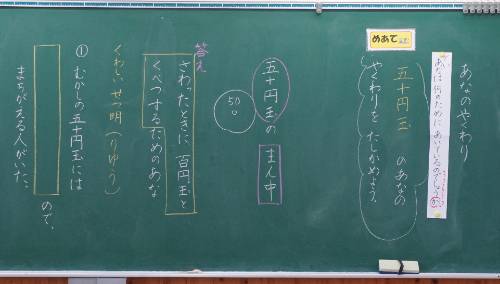 あなのやくわり
あなは何のためにあいているのでしょうか。
めあて
五十円玉のあなの
やくわりをたしかめよう。
五十円玉の まん中
50
答え
さわったときに百円玉と
くべつするためのあな
くわしいせつ明（りゆう）
① むかしの五十円玉には
ので、
まちがえる人がいた。